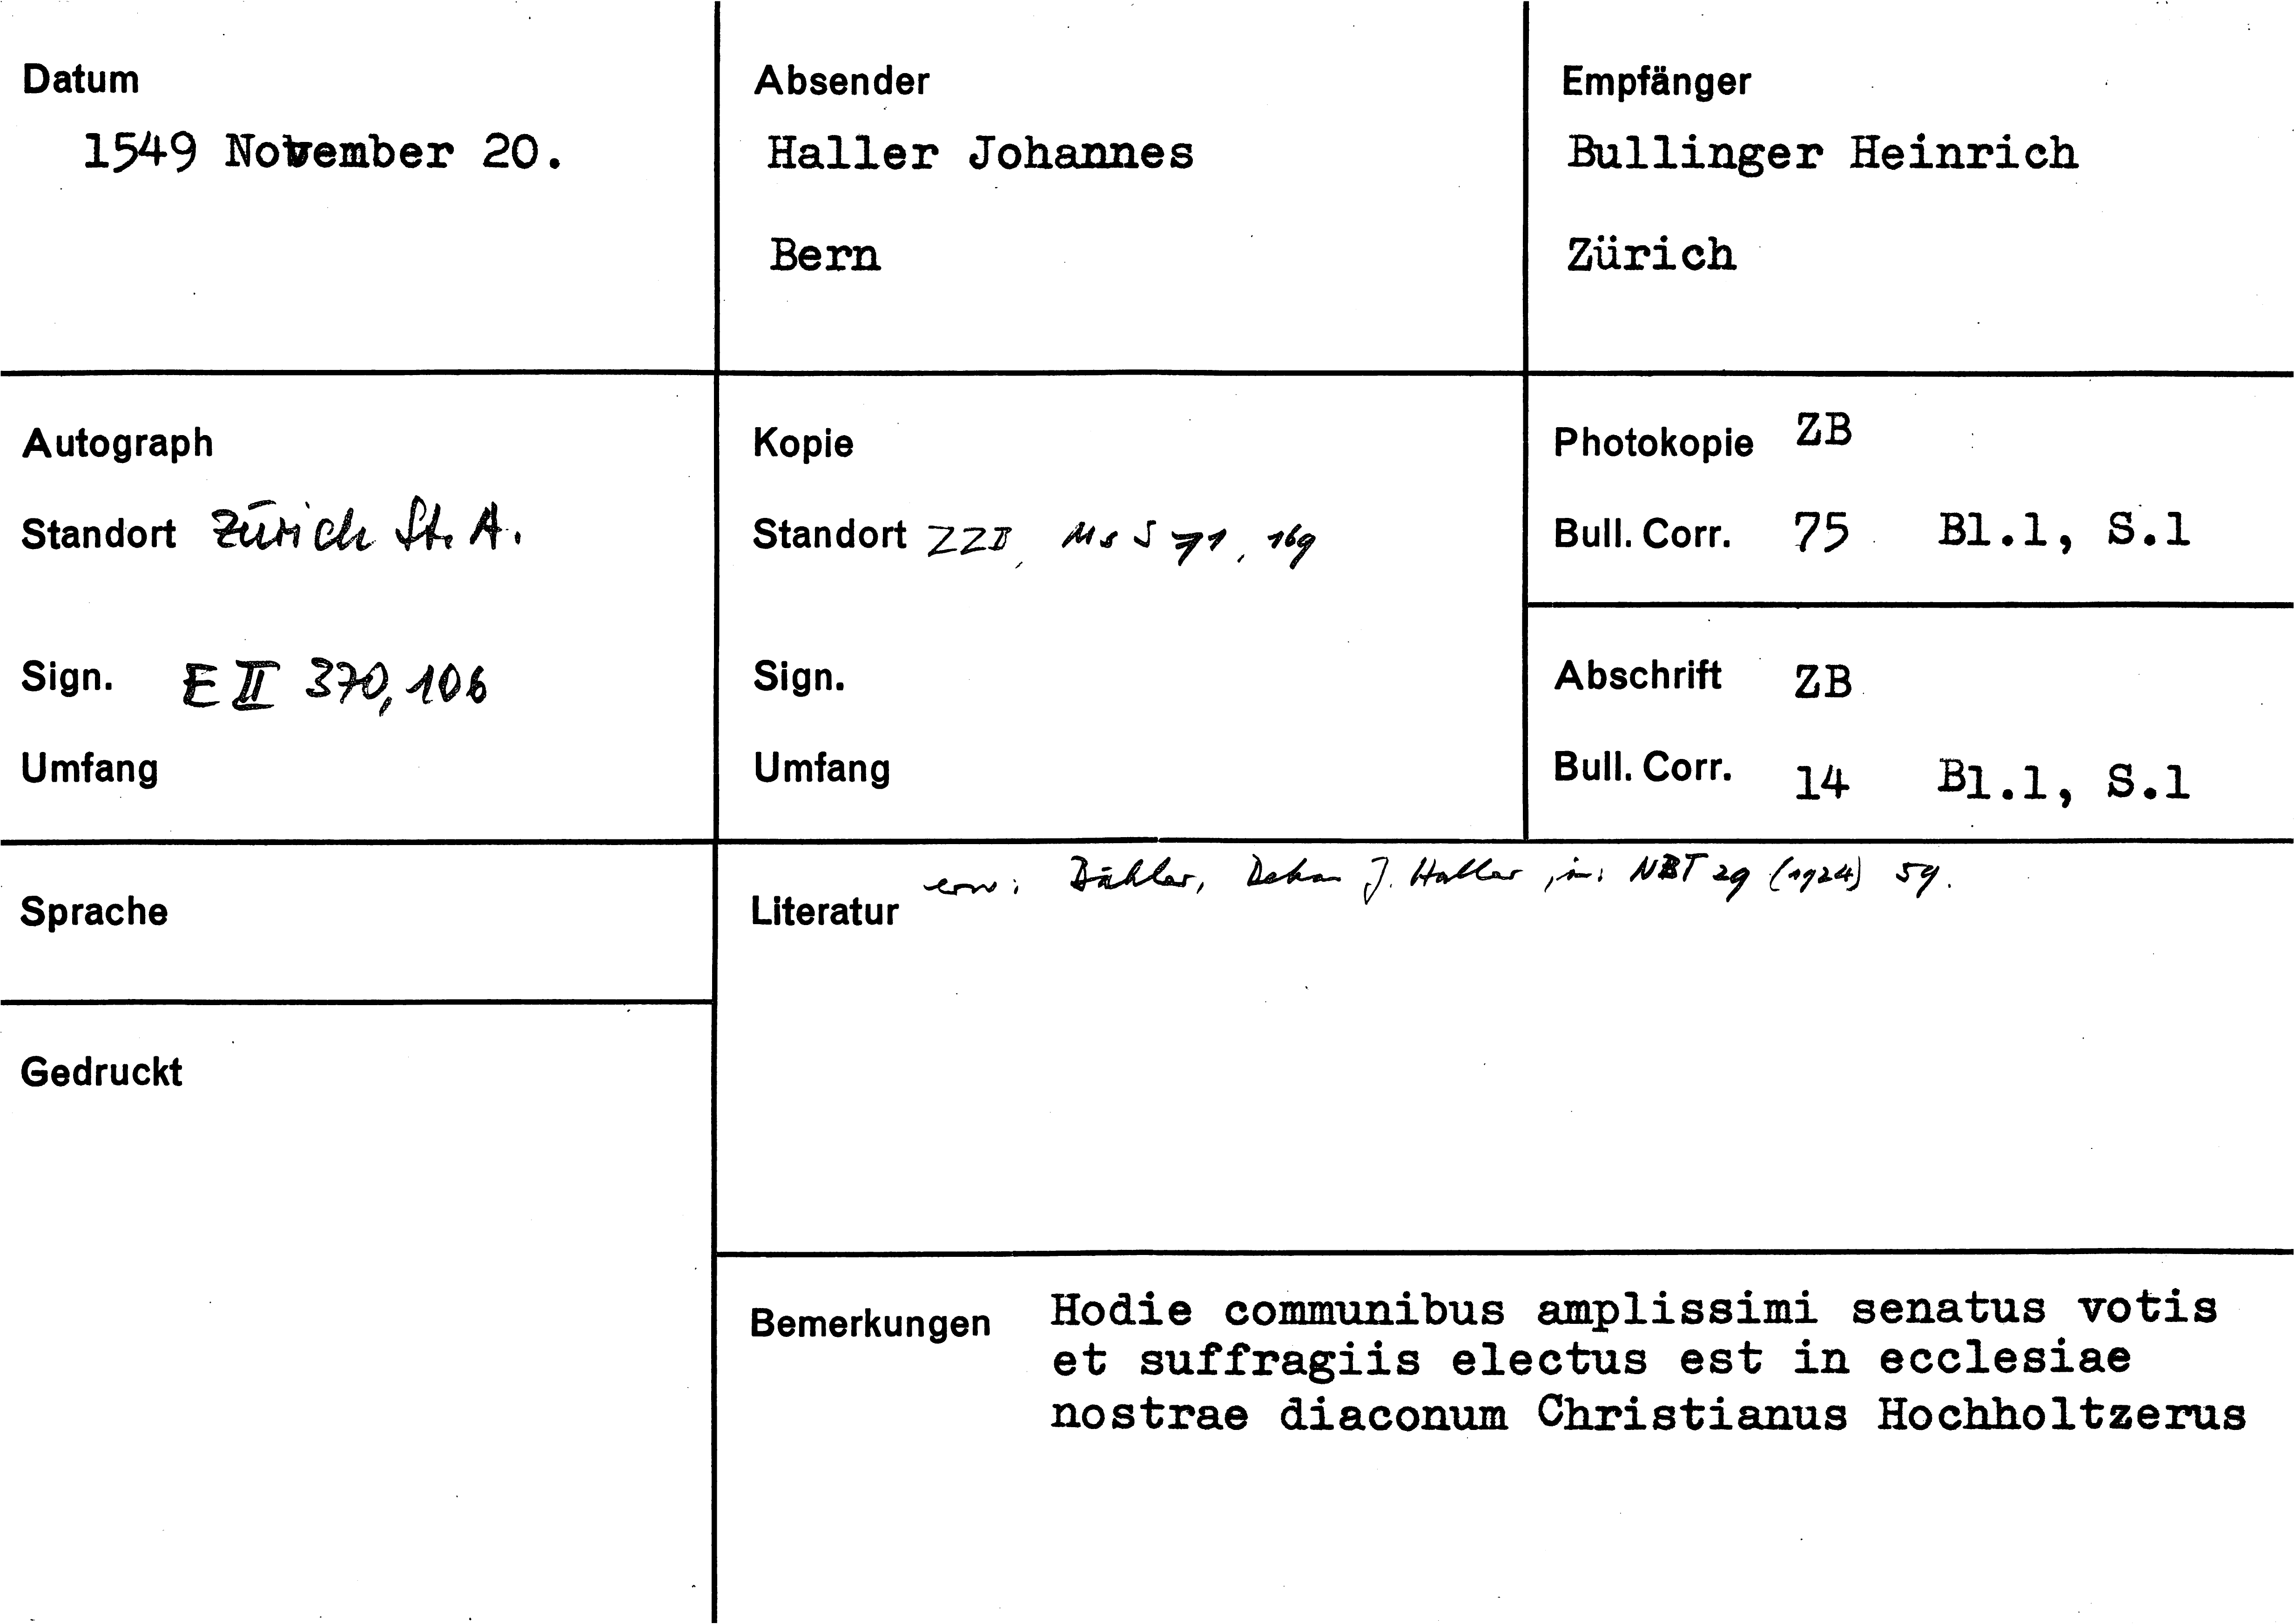 Datum
1549 November 20.
Absender
Haller Johannes
Bern
Empfänger
Bullinger Heinrich
Zürich
Autograph
Standort Zürich St. A.
Sign. E II 370, 106
Umfang
Kopie
Standort ZZB, Ms S 71, 169
Sign.
Umfang
Photokopie ZB
Bull. Corr. 75 Bl.1, S.1
Abschrift ZB
Bull. Corr. 14 Bl.1, S.1
Sprache
Gedruckt
Literatur erw: Bähler, Dekan J. Haller, in: NBT 29 (1924) 59.
Bemerkungen Hodie communibus amplissimi senatus votis
et suffragiis electus est in ecclesiae
nostrae diaconum Christianus Hochholtzerus